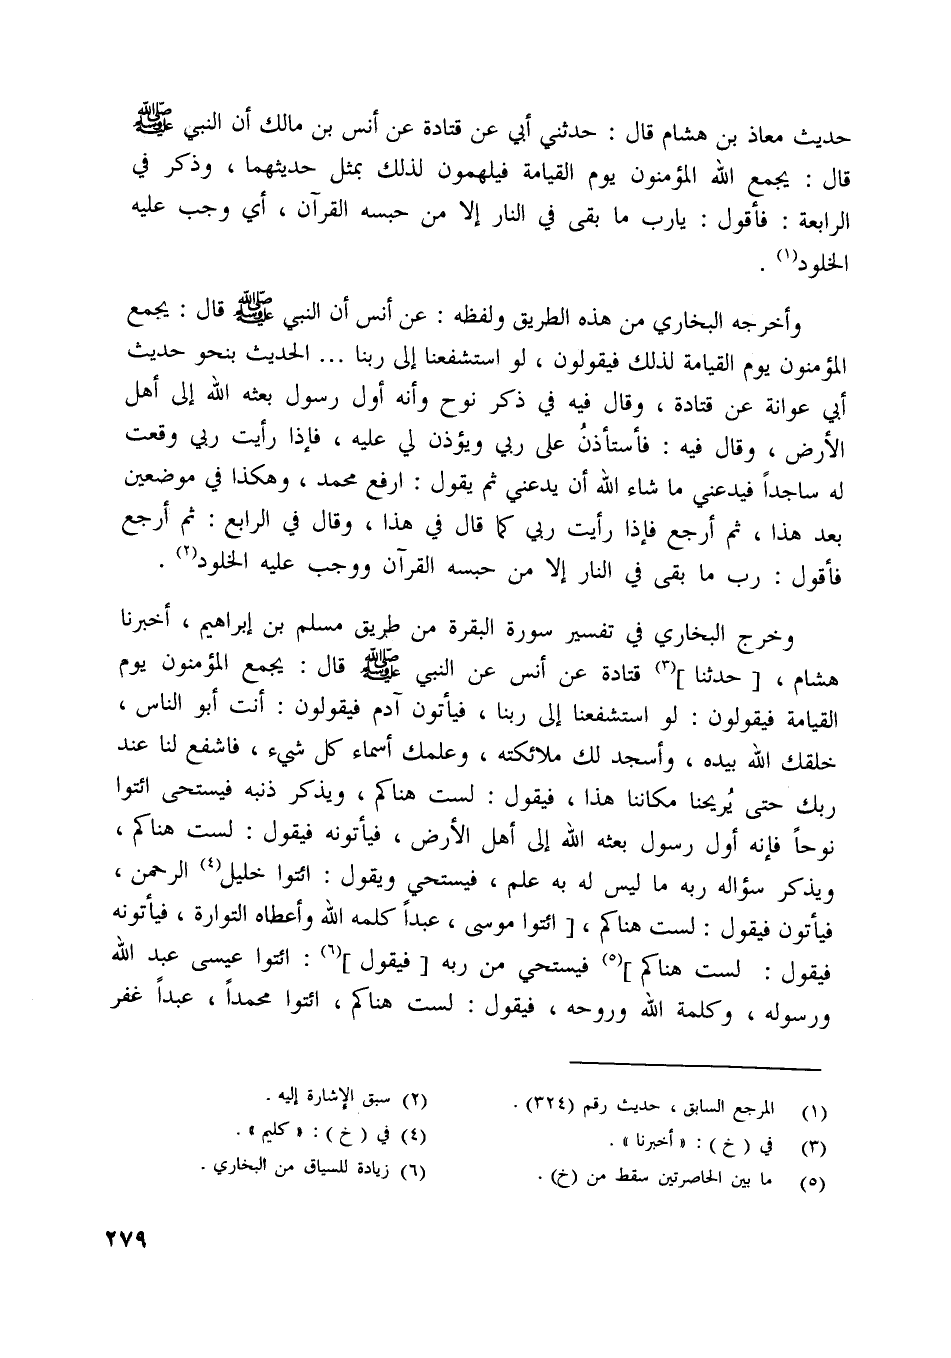 حديث معاذ بن هشام قال : حدثني أبي عن قتادة عن أنس بن مالك أن النبي ﷺ
قال : يجمع الله المؤمنون يوم القيامة فيلهمون لذلك بمثل حديثهما ، وذكر في
الرابعة : فأقول : يارب ما بقى في النار إلا من حبسه القرآن ، أي وجب عليه
الخلود(١) .
وأخرجه البخاري من هذه الطريق ولفظه : عن أنس أن النبي ﷺ قال : يجمع
المؤمنون يوم القيامة لذلك فيقولون ، لو استشفعنا إلى ربنا ... الحديث بنحو حديث
أبي عوانة عن قتادة ، وقال فيه في ذكر نوح وأنه أول رسول بعثه الله إلى أهل
الأرض ، وقال فيه : فأستأذنُ على ربي ويؤذن لي عليه ، فإذا رأيت ربي وقعت
له ساجداً فيدعني ما شاء الله أن يدعني ثم يقول : ارفع محمد ، وهكذا في موضعين
بعد هذا ، ثم أرجع فإذا رأيت ربي كما قال في هذا ، وقال في الرابع : ثم أرجع
فأقول : رب ما بقى في النار إلا من حبسه القرآن ووجب عليه الخلود(٢) .
وخرج البخاري في تفسير سورة البقرة من طريق مسلم بن إبراهيم ، أخبرنا
هشام ، [ حدثنا ](٣) قتادة عن أنس عن النبي ﷺ قال : يجمع المؤمنون يوم
القيامة فيقولون : لو استشفعنا إلى ربنا ، فيأتون آدم فيقولون : أنت أبو الناس ،
خلقك الله بيده ، وأسجد لك ملائكته ، وعلمك أسماء كل شيء ، فاشفع لنا عند
ربك حتى يُريحنا مكاننا هذا ، فيقول : لست هناكم ، ويذكر ذنبه فيستحى ائتوا
نوحاً فإنه أول رسول بعثه الله إلى أهل الأرض ، فيأتونه فيقول : لست هناكم ،
ويذكر سؤاله ربه ما ليس له به علم ، فيستحي ويقول : ائتوا خليل(٤) الرحمن ،
فيأتون فيقول : لست هناكم ، [ ائتوا موسى ، عبداً كلمه الله وأعطاه التوارة ، فيأتونه
فيقول : لست هناكم ](٥) فيستحي من ربه [ فيقول ](٦) : ائتوا عيسى عبد الله
ورسوله ، وكلمة الله وروحه ، فيقول : لست هناكم ، ائتوا محمداً ، عبداً غفر
(١) المرجع السابق ، حديث رقم (٣٢٤) . (٢) سبق الإشارة إليه .
(٣) في ( خ ) : « أخبرنا » . (٤) في ( خ ) : « كليم » .
(٥) ما بين الحاصرتين سقط من (خ) . (٦) زيادة للسياق من البخاري .
٢٧٩